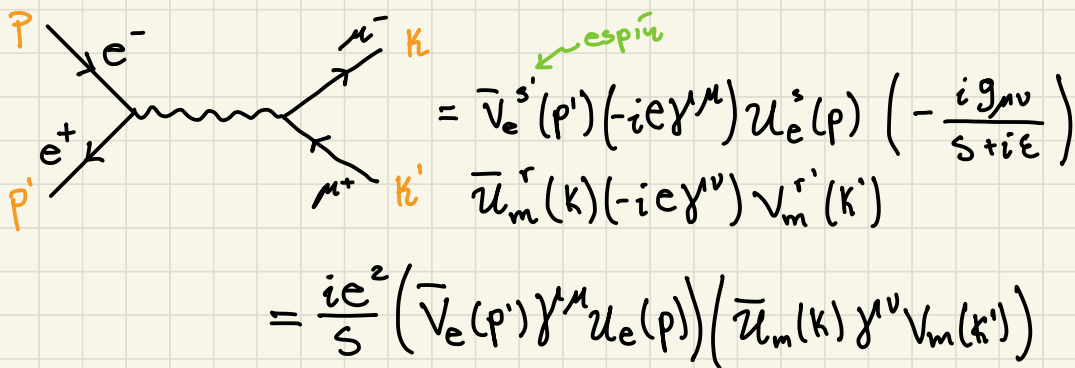 P e⁻ μ⁻ K
e⁺ μ⁺
P' K'
espín
= v̄ₑˢ'(p')(-ieγ^μ) uₑˢ(p) (- i g_μν / s+iε)
ū_mʳ(k)(-ieγ^ν) v_mʳ'(k')
= ie²/s (v̄ₑ(p')γ^μ uₑ(p))(ū_m(k) γ^ν v_m(k'))